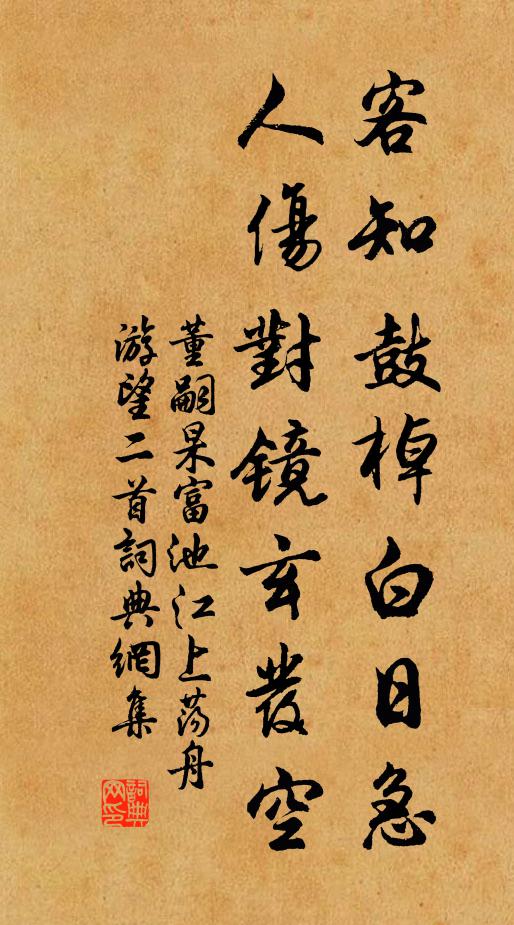 客知鼓棹白日急
人傷對鏡玄發空
董嗣杲富池江上蕩舟
游望二首詞典網集
詞典
网印